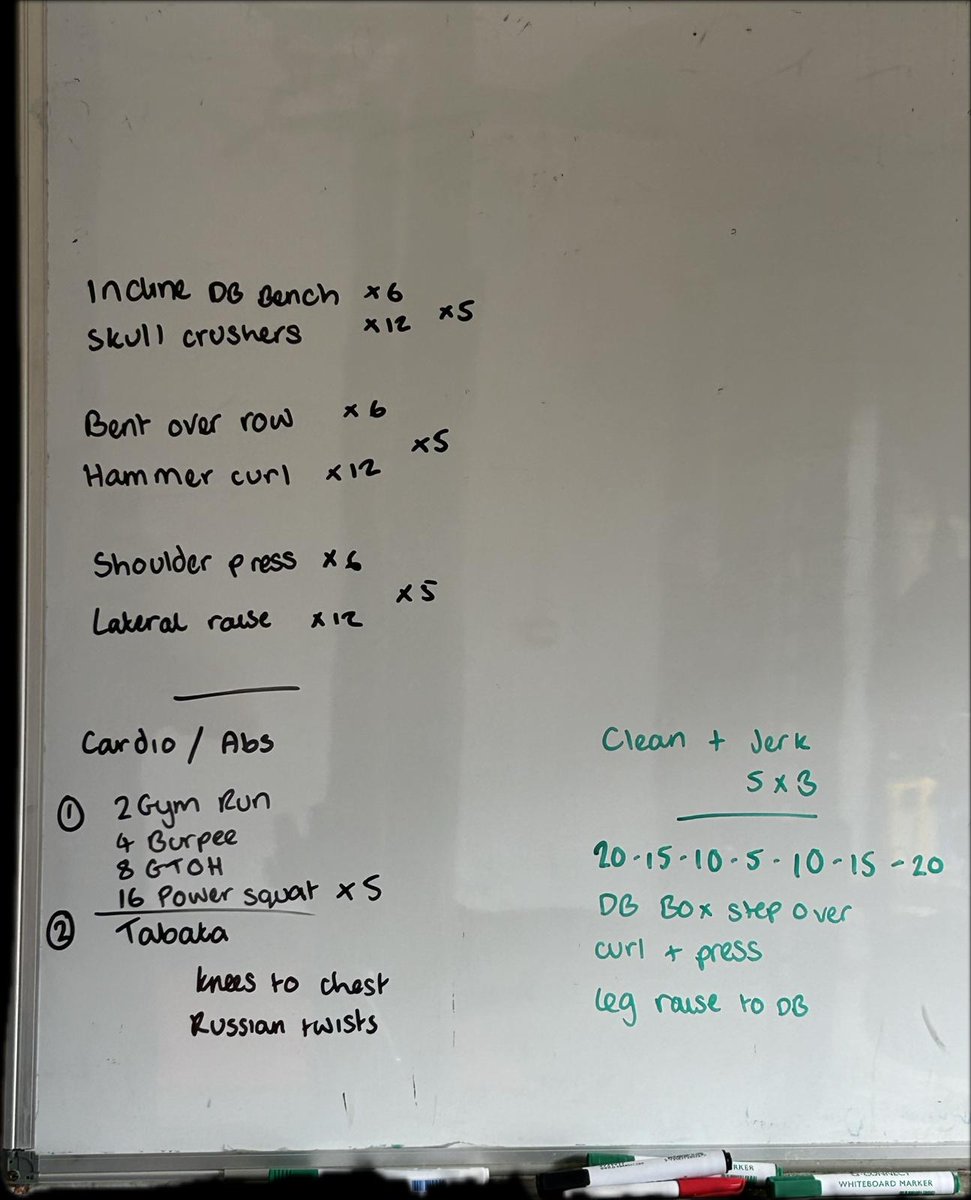 Incline DB Bench x 6
Skull crushers x 12 x5
Bent over row x 6
x5
Hammer curl x 12
Shoulder press x 6
x 5
Lateral raise x 12
Cardio / Abs
① 2 Gym Run
4 Burpee
8 GTOH
16 Power squat x 5
② Tabata
knees to chest
Russian twists
Clean + Jerk
5 x 3
20 - 15 - 10 - 5 - 10 - 15 - 20
DB Box step over
curl + press
leg raise to DB
RKER
WHITEBOARD MARKER